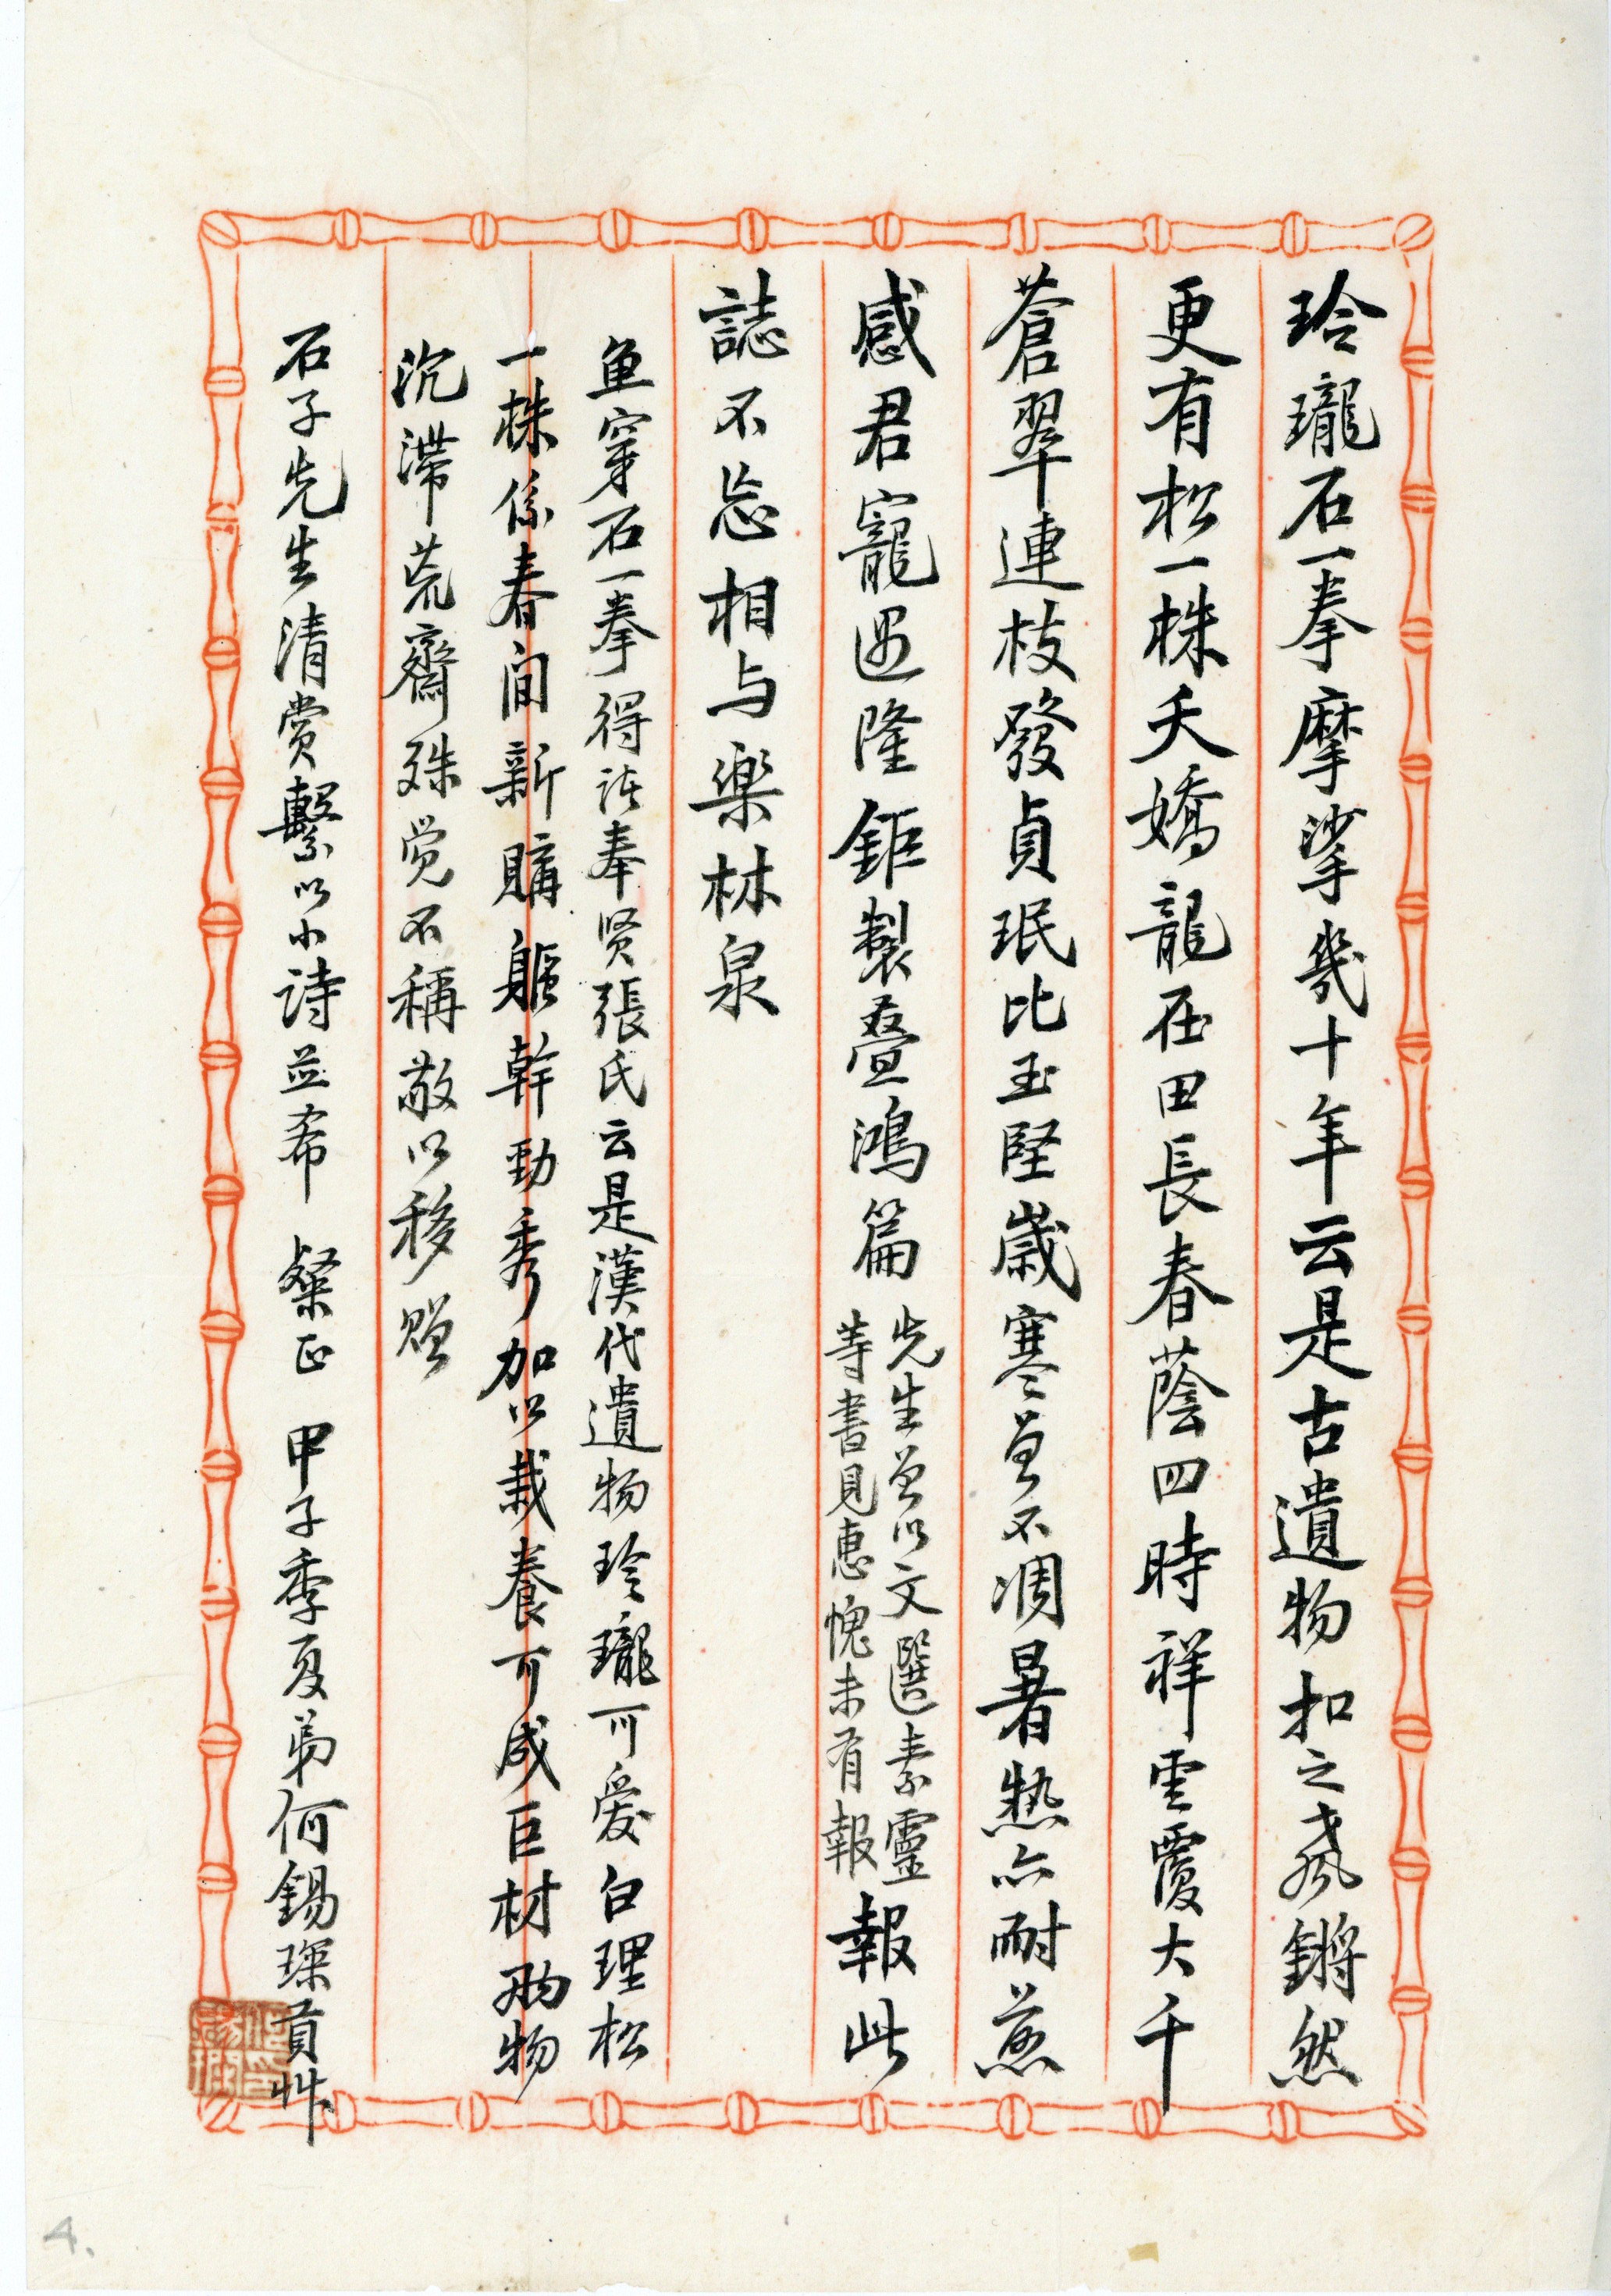 玲瓏石一拳摩挲幾十年云是古遺物扣之聲鏘然
更有松一株夭嬌龍在田長春蔭四時祥雲覆大千
蒼翠連枝發貞珉比玉堅歲寒曾不凋暑熱亦耐煎
感君寵遇隆鉅製叠鴻篇
先生曾以文選素靈
等書見惠愧未有報
報此
誌不忘相与樂林泉
魚穿石一拳得諸奉贤張氏云是漢代遺物玲瓏可爱白理松
一株係春间新購軀幹勁秀加以栽養可成巨材兩物
沉滯荒齋殊觉不稱敬以移贈
石子先生清赏繫以小詩並希 粲正 甲子季夏弟何錫琛貢艸
4.